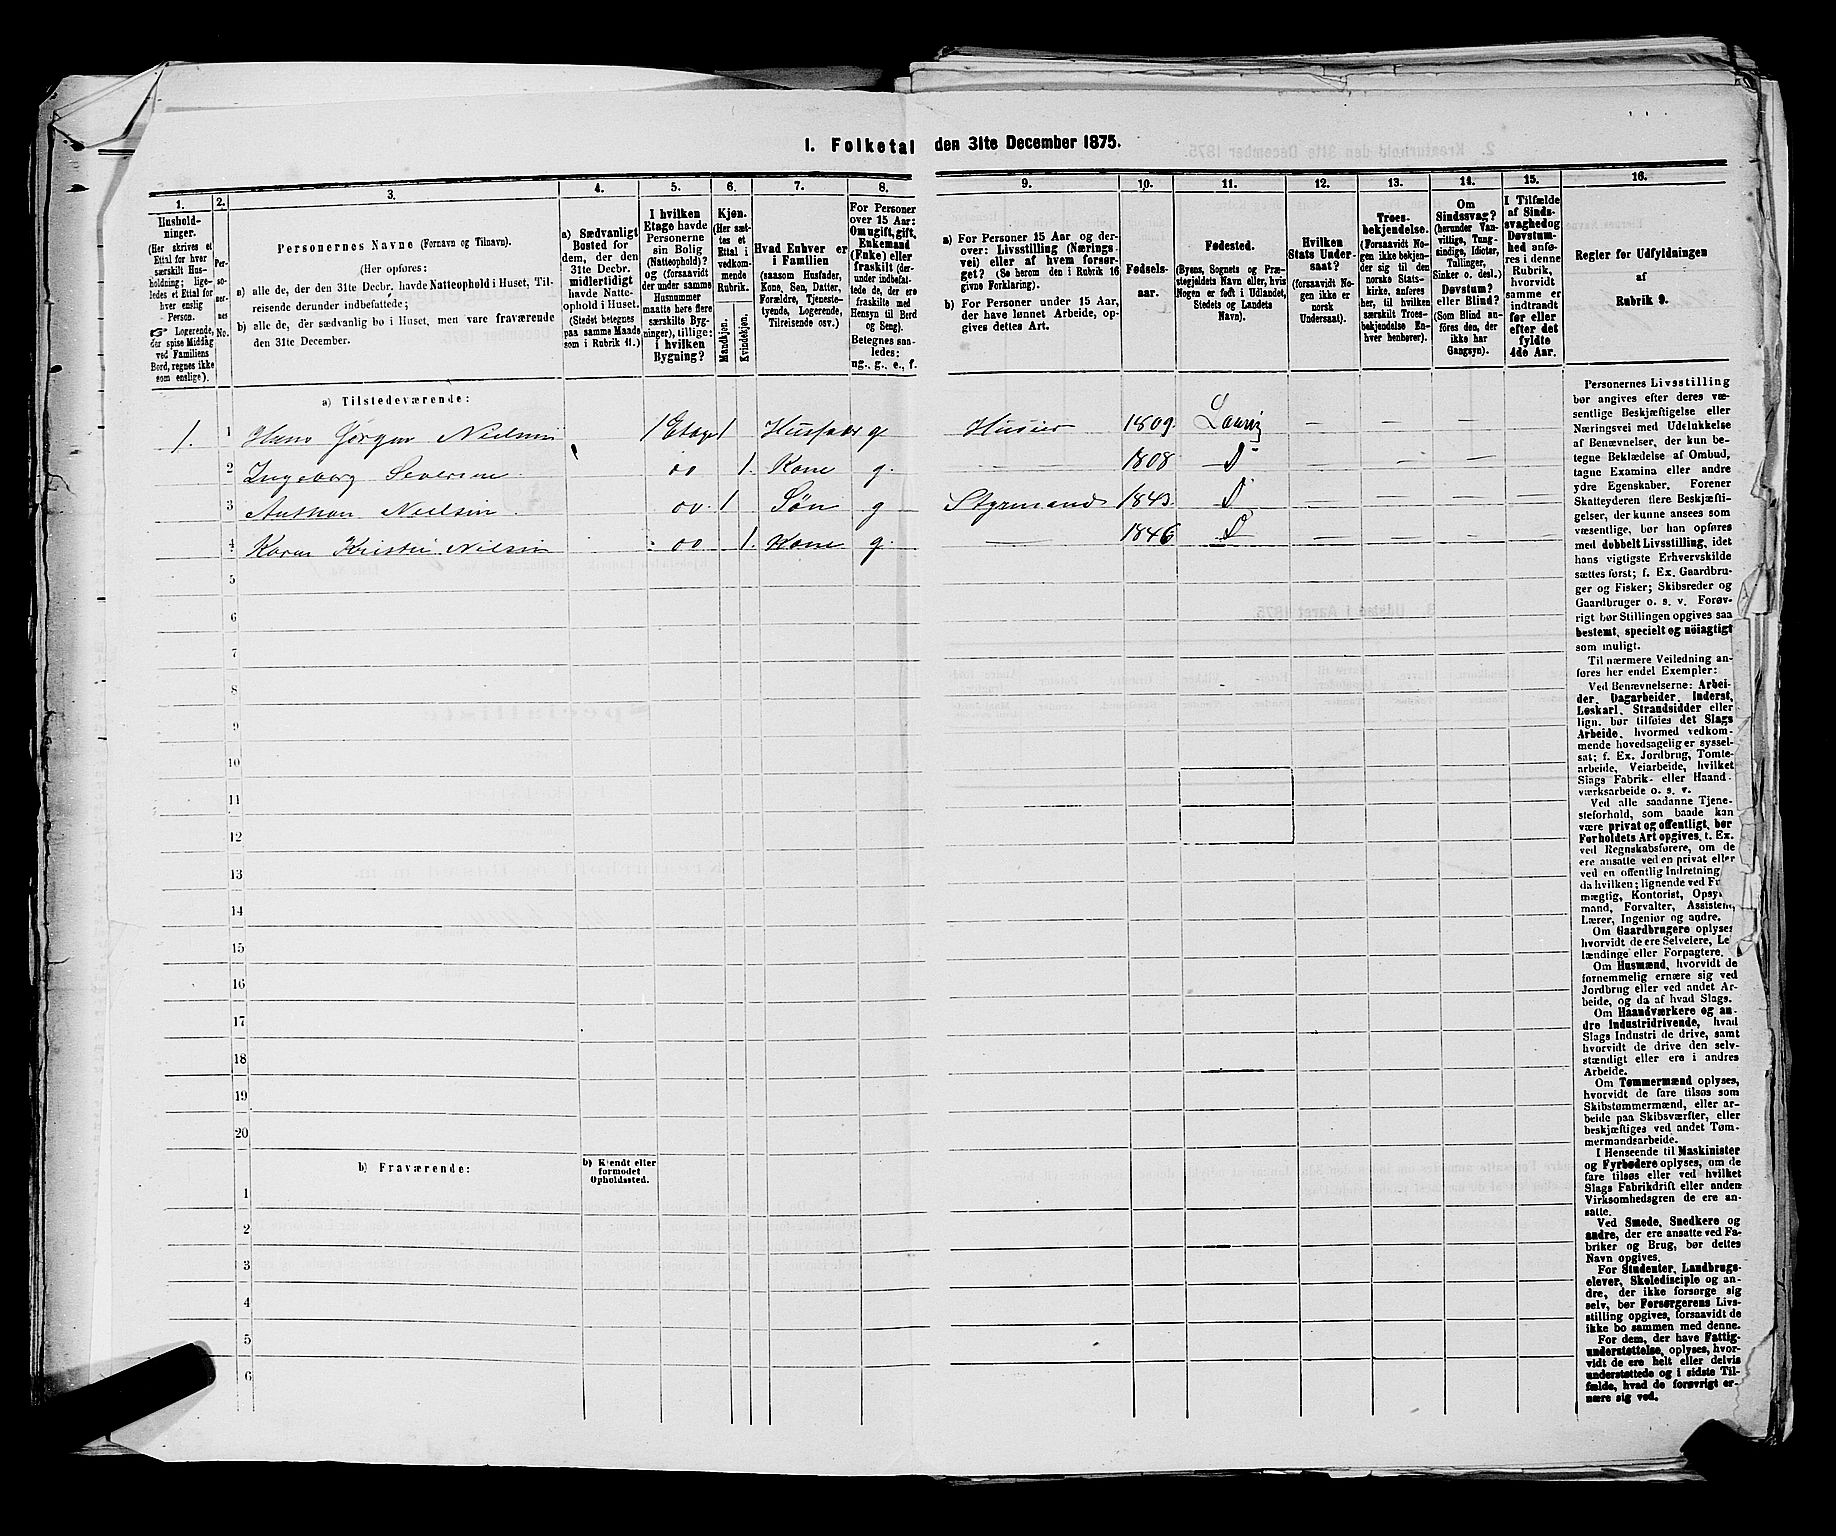 1. Folketal den 31te December 1875.
1.
2.
3.
4.
5.
6.
7.
8.
9.
10.
11.
12.
13.
14.
15.
16.
Hushold-
ninger.
(Her skrives et
Ettal for hver
særskilt Hus-
holdning; lige-
ledes et Ettal for
hver enslig
Person.
☞ Logerende,
der spise Middag
ved Familiens
Bord, regnes ikke
som enslige).
Per-
so-
ner-
nes
No.
Personernes Navne (Fornavn og Tilnavn).
(Her opføres:
a) alle de, der den 31te Decbr. havde Natteophold i Huset, Til-
reisende derunder indbefattede;
b) alle de, der sædvanlig bo i Huset, men vare fraværende
den 31te December.
a) Sædvanligt
Bosted for
dem, der den
31te Decbr.
midlertidigt
havde Natte-
ophold i Huset.
(Stedet betegnes
paa samme Maade
som i Rubrik 11.)
I hvilken
Etage havde
Personerne
sin Bolig
(Natteophold)?
og (forsaavidt
der under samme
Husnummer
maatte høre flere
særskilte Byg-
ninger), tillige:
i hvilken
Bygning?
Kjøn.
(Her sæt-
tes et
Ettal i
vedkom-
mende
Rubrik.
Mandkjøn.
Kvindekjøn.
Hvad Enhver er
i Familien
(saasom Husfader,
Kone, Søn, Datter,
Forældre, Tjeneste-
tyende, Logerende,
Tilreisende osv.)
For Personer
over 15 Aar:
Om ugift, gift,
Enkemand
(Enke) eller
fraskilt (der-
under indbefat-
tede de, der ere
fraskilte med
Hensyn til Bord
og Seng).
Betegnes saa-
ledes:
ug., g., e., f.
a) For Personer 15 Aar og der-
over: Livsstilling (Nærings-
vei) eller af hvem forsør-
get? (Se herom den i Rubrik 16
givne Forklaring).
b) For Personer under 15 Aar,
der have lønnet Arbeide, op-
gives dettes Art.
Fødsels-
aar.
Fødested.
(Byens, Sognets og Præ-
stegjeldets Navn, eller, hvis
Nogen er født i Udlandet,
Stedets og Landets
Navn).
Hvilken
Stats Under-
saat?
(forsaavidt No-
gen ikke er
norsk
Undersaat).
Troes-
bekjendelse.
(Forsaavidt No-
gen ikke bekjen-
der sig til den
norske Stats-
kirke, anføres
her, til hvilken
særskilt Troes-
bekjendelse En-
hver henhører).
Om
Sindssvag?
(herunder Van-
vittige, Tung-
sindige, Idioter,
Tullinger,
Sinker o. desl.)
Døvstum?
eller Blind?
(Som Blind an-
føres den, der
ikke har
Gangsyn).
I Tilfælde
af Sinds-
svaghed og
Døvstum-
hed anfø-
res i denne
Rubrik,
hvorvidt
samme er
indtraadt
før eller
efter det
fyldte
4de Aar.
Regler for Udfyldningen
af
Rubrik 9.
a) Tilstedeværende:
1. 1 Hans Jørgen Nielsen 1 Etage 1 Husfader g Huseier 1809 Laurvig — — —
2 Ingeborg Seversen oo 1. Kone g. — 1808 D — — —
3 Anthon Nielsen oo 1 Søn g Styrmand 1843. D — — —
4 Karen Kristie Nilsen oo 1. Kone g. — 1846 D — — —
5
6
7
8
9
10
11
12
13
14
15
16
17
18
19
20
b) Fraværende:
b) Kjendt eller
formodet
Opholdssted.
1
2
3
4
5
6
Personernes Livsstilling
bør angives efter deres væ-
sentlige Beskjæftigelse eller
Næringsvei med Udelukkelse
af Benævnelser, der kun be-
tegne Beklædelse af Ombud,
tagne Examina eller andre
ydre Egenskaber. Forener
Skatteyderen flere Beskjæfti-
gelser, der kunne ansees som
væsentlige, bør han opføres
med dobbelt Livsstilling, idet
hans vigtigste Erhvervskilde
sættes først; f. Ex. Gaardbru-
ger og Fisker; Skibsreder og
Gaardbruger o. s. v. Forøv-
rigt bør Stillingen opgives saa
bestemt, specielt og nöiagtigt
som muligt.
Til nærmere Veiledning an-
føres her endel Exempler:
Ved Benævnelserne: Arbei-
der, Dagarbeider, Inderst,
Løskarl, Strandsidder eller
lign. bør tilføies det Slags
Arbeide, hvormed vedkom-
mende hovedsagelig er syssel-
sat; f. Ex. Jordbrug, Tomte-
arbeide, Veiarbeide, hvilket
Slags Fabrik- eller Haand-
værksarbeide o. s. v.
Ved alle saadanne Tjene-
steforhold, som baade kan
være privat og offentligt, bør
Forholdets Art opgives, t. Ex.
ved Regnskabsførere, om de
ere ansatte ved en privat eller
ved en offentlig Indretning
da hvilken; lignende ved F
mægtig, Kontorist, Opsyns-
mand, Forvalter, Assistent,
Lærer, Ingeniør og andre.
Om Gaardbrugere oplyses
hvorvidt de ere Selveiere, Lei-
lændinge eller Forpagtere.
Om Husmænd, hvorvidt de
fornemmelig ernære sig ved
Jordbrug eller ved andet Ar-
beide, og da af hvad Slags.
Om Haandværkere og an-
dre Industridrivende, hvad
Slags Industri de drive, samt
hvorvidt de drive den selv-
stændigt eller ere i andres
Arbeide.
Om Tømmermænd oplyses,
hvorvidt de fare tilsøs som
Skibstømmermænd, eller ar-
beide paa Skibsværfter, eller
beskjæftiges ved andet Tøm-
mermandsarbeide.
I Henseende til Maskinister
og Fyrbødere oplyses, om de
fare tilsøs eller ved hvilket
Slags Fabrikdrift eller anden
Virksomhedsgren de ere an-
satte.
Ved Smede, Snedkere og
andre, der ere ansatte ved Fa-
briker og Brug, bør dettes
Navn opgives.
For Studenter, Landbrugs-
elever, Skoledisciple og an-
dre, der ikke forsørge sig
selv, bør Forsørgerens Livs-
stilling opgives, forsaavidt de
ikke bo sammen med denne.
For dem, der have Fattig-
understøttelse, oplyses, hvor-
vidt de ere helt eller delvis
understøttede og i sidste Til-
fælde, hvad de forøvrigt er-
nære sig ved.